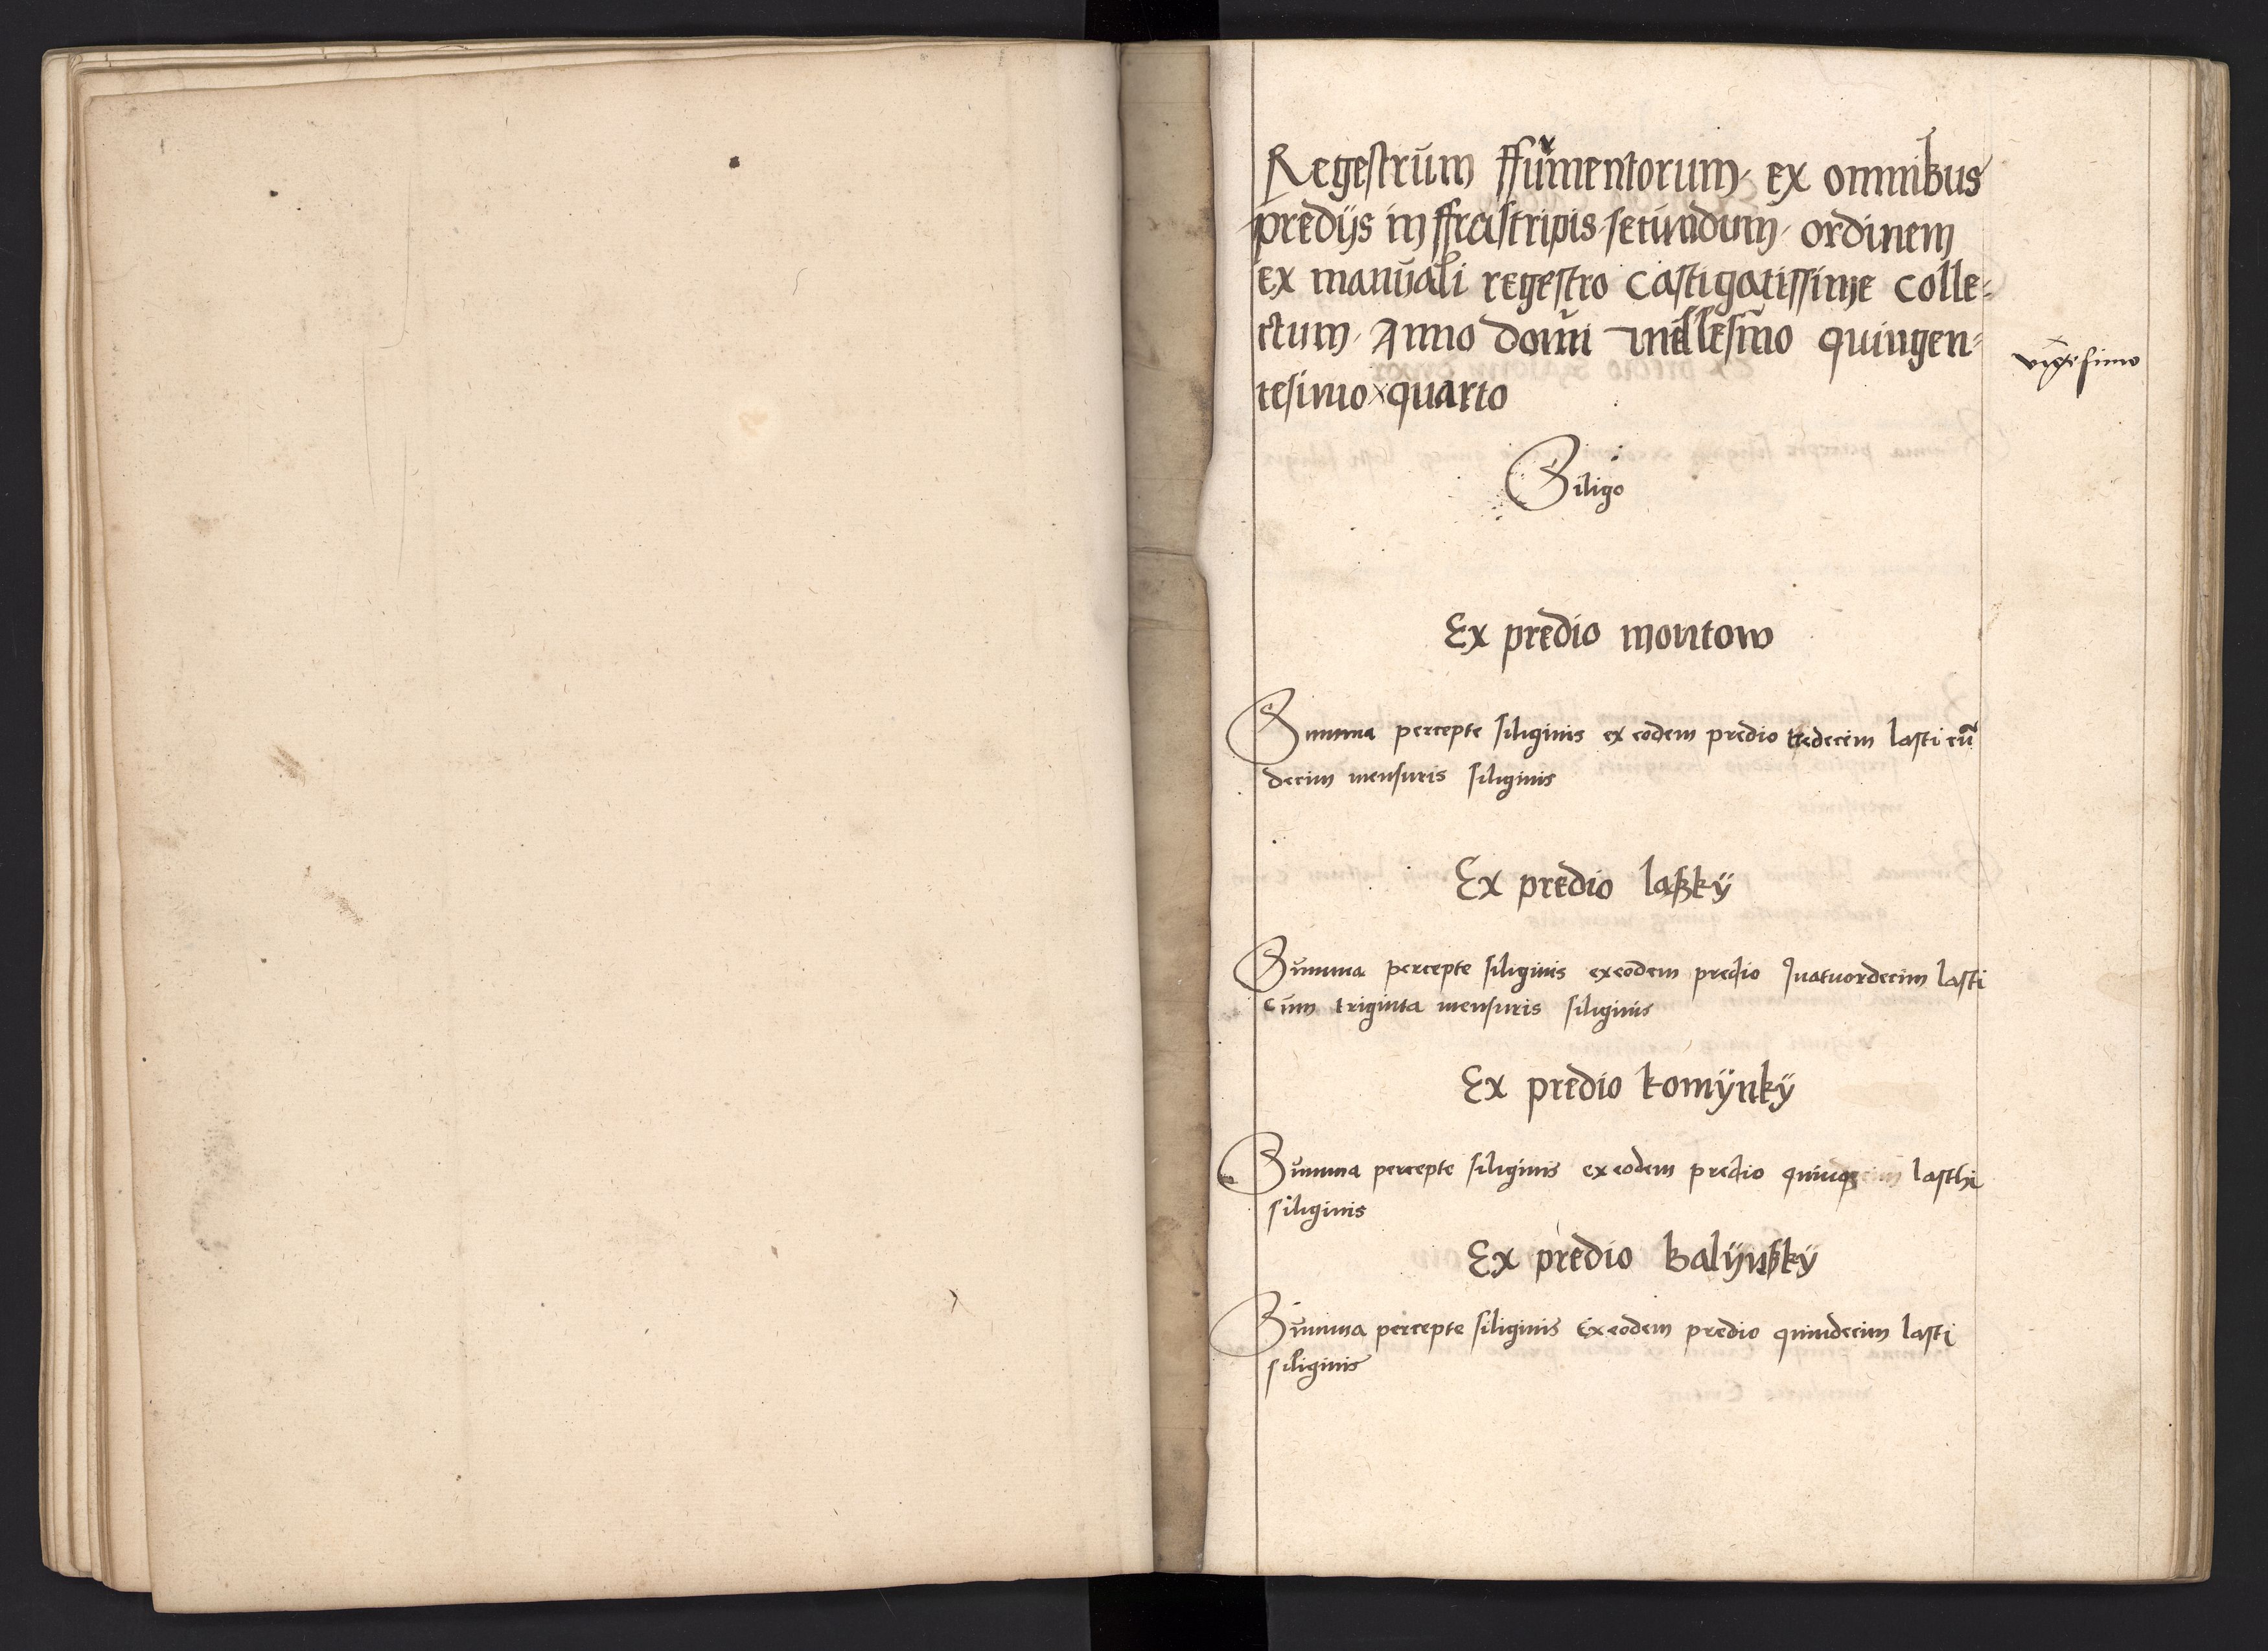 Regestrum ffrumentorum ex omnibus
predijs inffrastripis secundum ordinem
ex manuali regestro castigatissime colle⸗
ctum Anno domi millesimo quingen⸗
tesimo × quarto
vigesimo
Siligo
Ex predio montow
Summa percepte siliginis ex eodem predio tredecim lasti cū
decim mensuris siliginis
Ex predio laßkÿ
Summa percepte siliginis ex eodem predio quatuordecim lasti
cum triginta mensuris siliginis
Ex predio komÿnkÿ
Summa percepte siliginis ex eodem predio quinqȝ lasthi
siliginis
Ex predio kalÿnßkÿ
Summa percepte siliginis Ex eodem predio quindecim lasti
siliginis